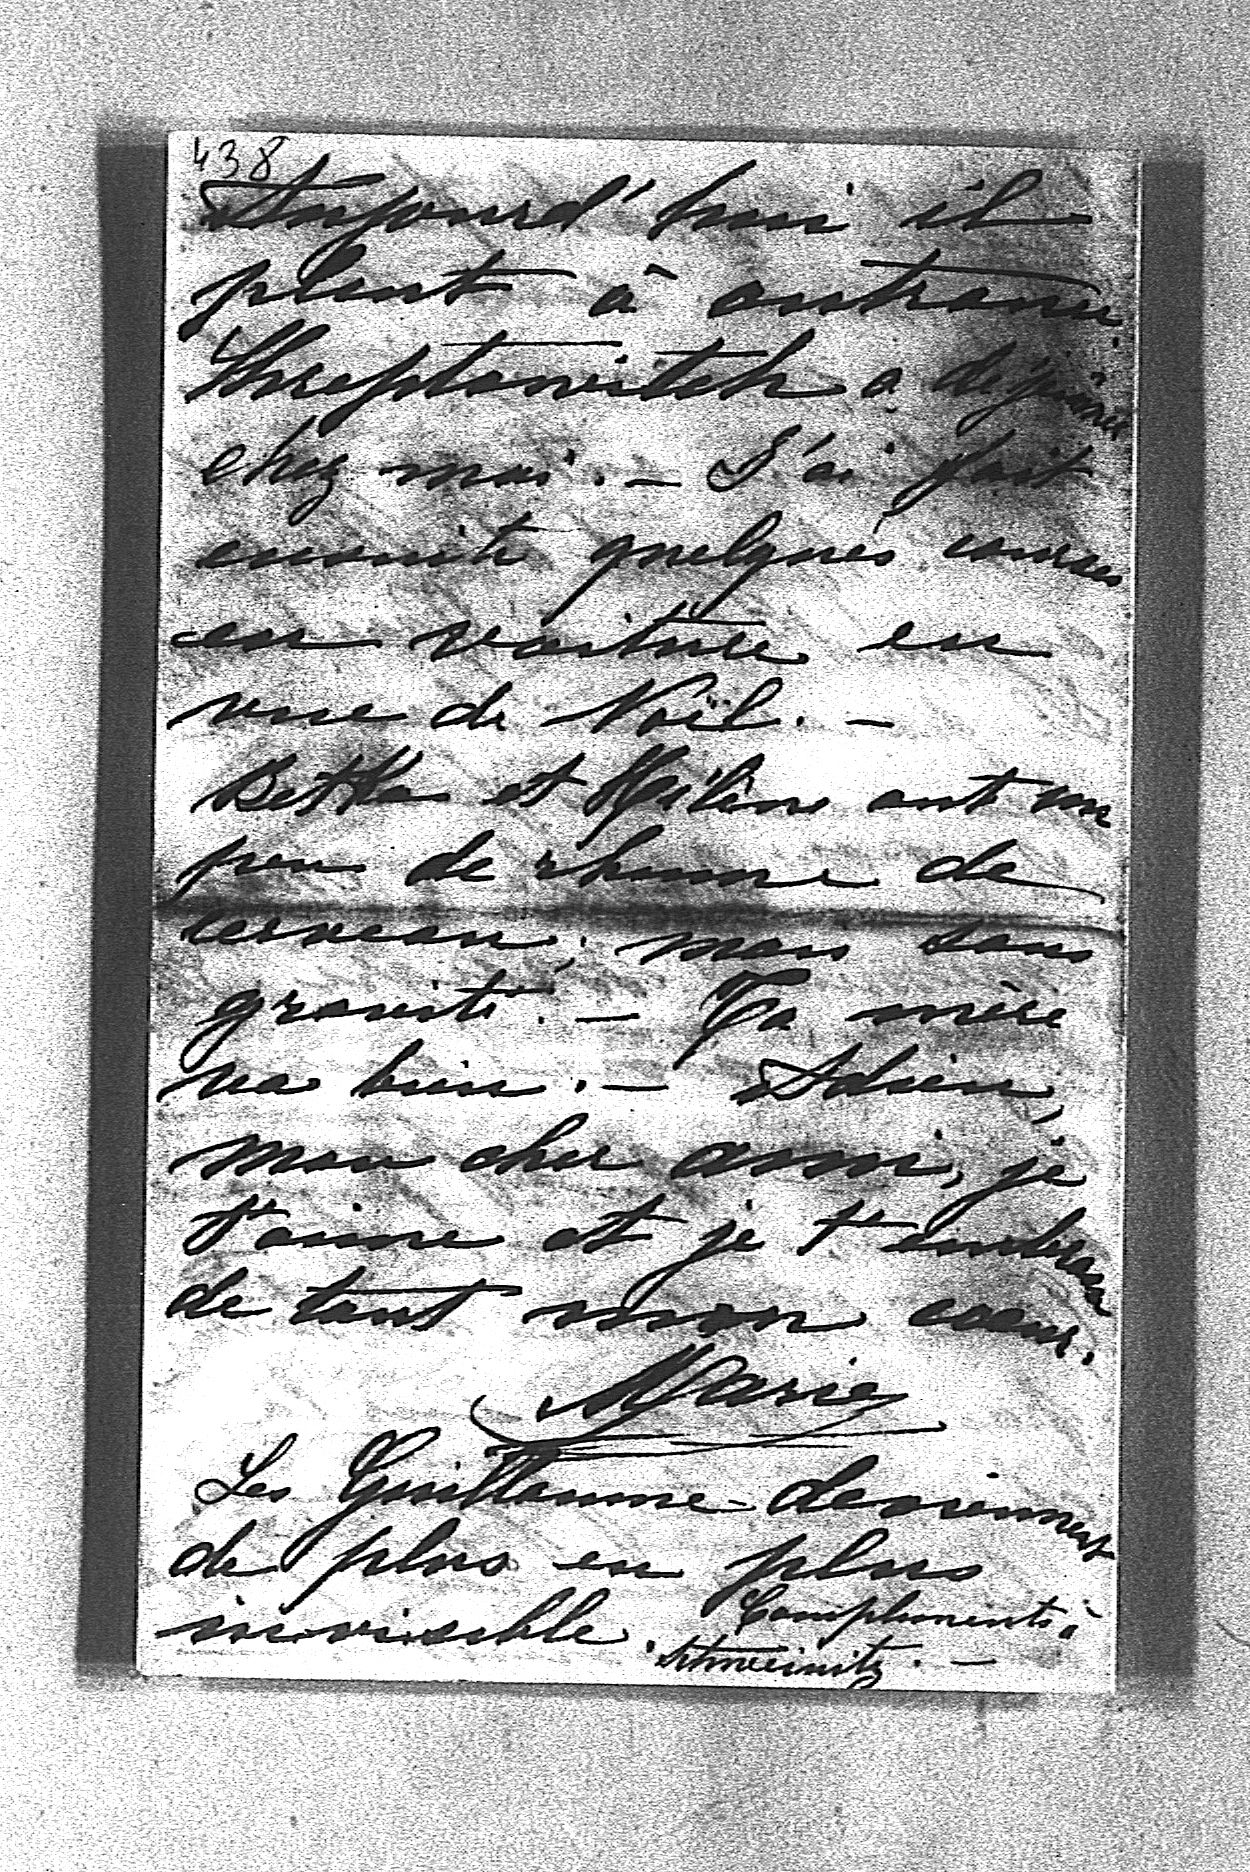 438
Aujourd'hui il
pleut à outrance.
Skreptowitch a déjeuné
chez moi. — J'ai fait
ensuite quelques courses
en voiture en
vue de Noël. —
Betka et Hélène ont un
peu de rhume de
cerveau, mais sans
gravité. — Ta mère
va bien. — Adieu,
mon cher ami, je
t'aime et je t'embrasse
de tout mon coeur.
Marie
Les Guillaume deviennent
de plus en plus
invisible.
Compliments à